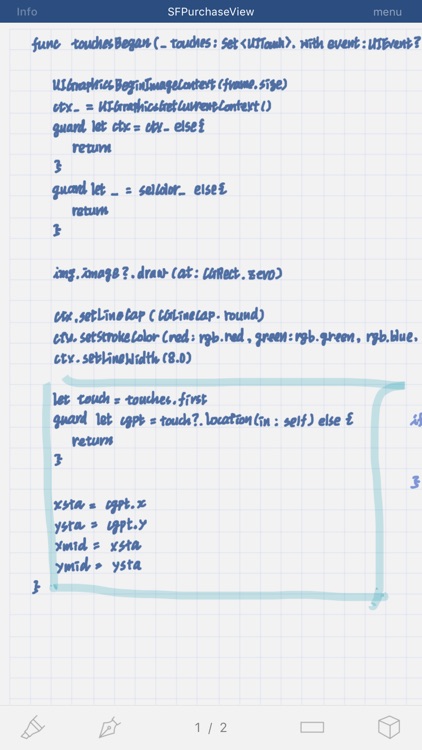 Info SFPurchaseView menu
func touchesBegan(_ touches: Set<UITouch>. with event: UIEvent?
UIGraphicsBeginImageContext(frame.size)
ctx_ = UIGraphicsGetCurrentContext()
guard let ctx = ctx_ else{
return
}
guard let _ = selcolor_ else{
return
}
img.image?.draw(at: CGRect.zero)
ctx.setLineCap(CGLineCap.round)
ctx.setStrokeColor(red: rgb.red, green: rgb.green, rgb.blue.
ctx.setLineWidth(8.0)
let touch = touches.first
guard let cgpt = touch?.location(in: self) else {
return
}
xsta = cgpt.x
ysta = cgpt.y
xmid = xsta
ymid = ysta
}
if
}
1 / 2